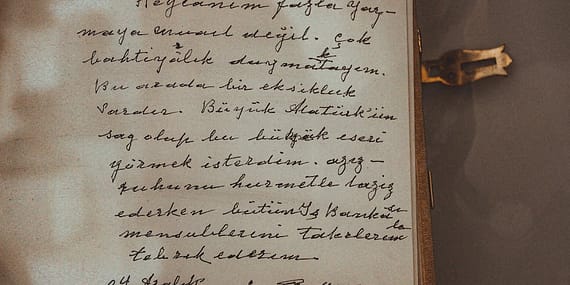 Heyecanım fazla yaz-
maya müsait değil. Çok
bahtiyarlık duymaktayım.
Bu arada bir eksiklik
vardır. Büyük Atatürk'ün
sağ olup bu büyük eseri
görmek isterdim. Aziz
ruhunu hürmetle taziz
ederken bütün İş Bankası
mensublarını takdirlerimle
tebrik ederim.
Aralık